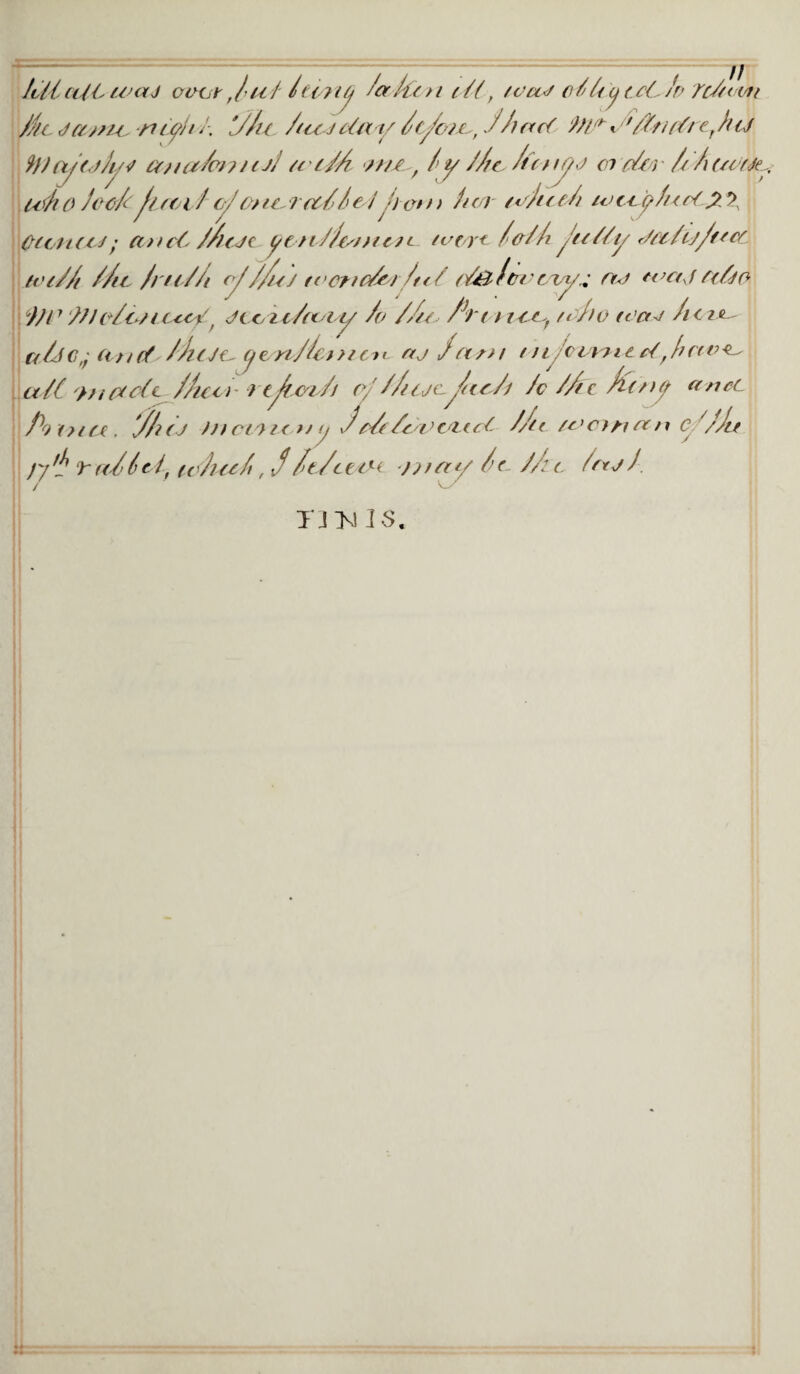 11
till all was over, but being taken ill, was obliged to return
the same night. The tuesday before, I had Mr. St. Andre, his
Majestys anatomist with me, by the kings order likewise,
who took part of one rabbet from her which weighed 2?
ounces; and these gentlemen were both fully satisfied
with the truth of this wonderful discovery; as was also
Mr Molyneux, secretary to the Prince, who was here
also; and these gentlemen as I am informed, have
all made their reports of these facts to the King and
Prince. This morning I delivered the woman of the
17th rabbet, which, I believe may be the last.
FINIS.